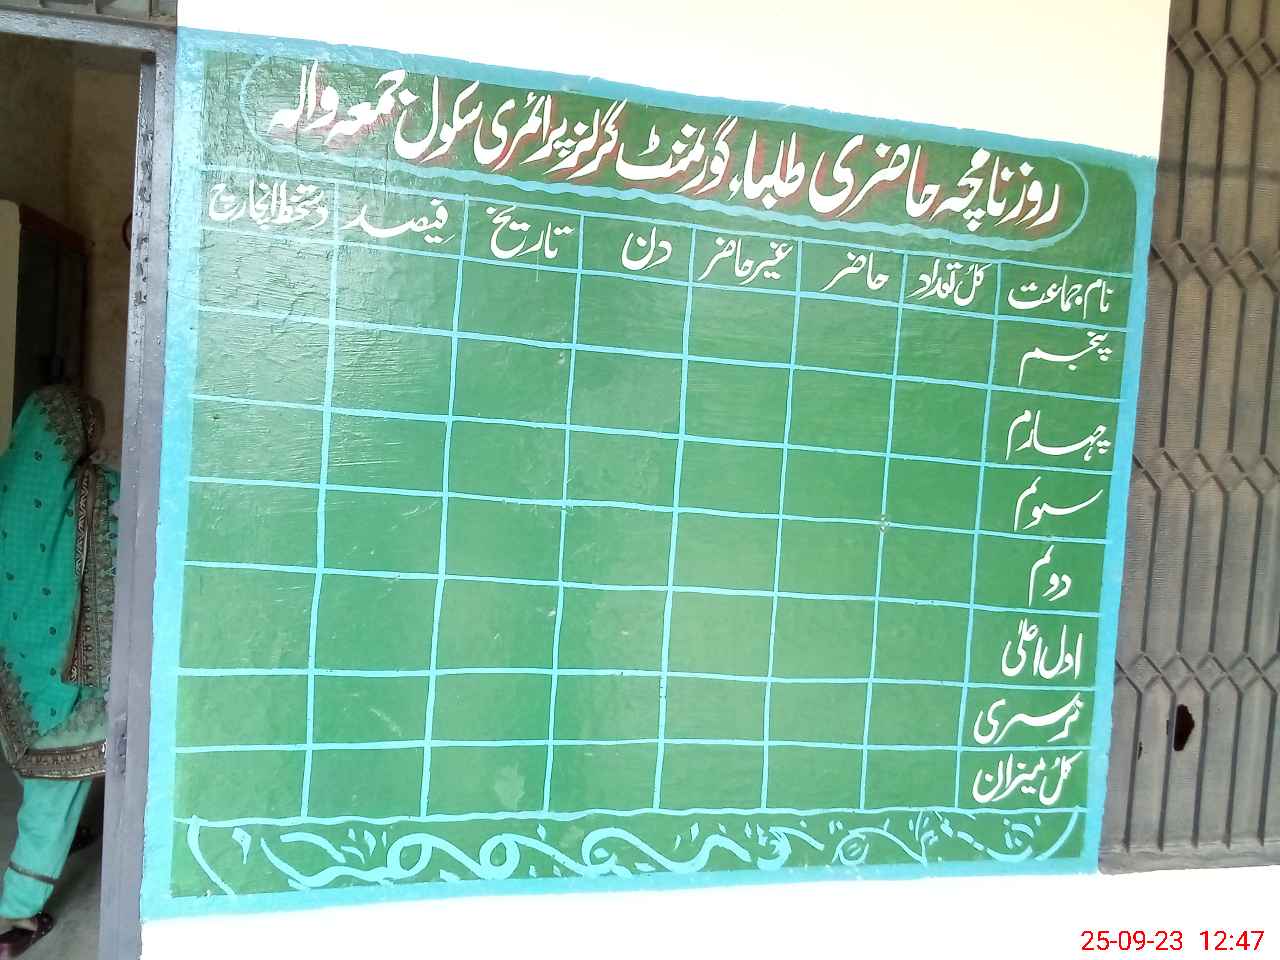 روزنامچہ حاضری طلباء گورنمنٹ گرلز پرائمری سکول جمعہ والہ
نام جماعت کل تعداد حاضر غیر حاضر دن تاریخ فیصد دستخط انچارج
پنجم
چہارم
سوئم
دوئم
اول اعلیٰ
نرسری
کل میزان
25-09-23 12:47